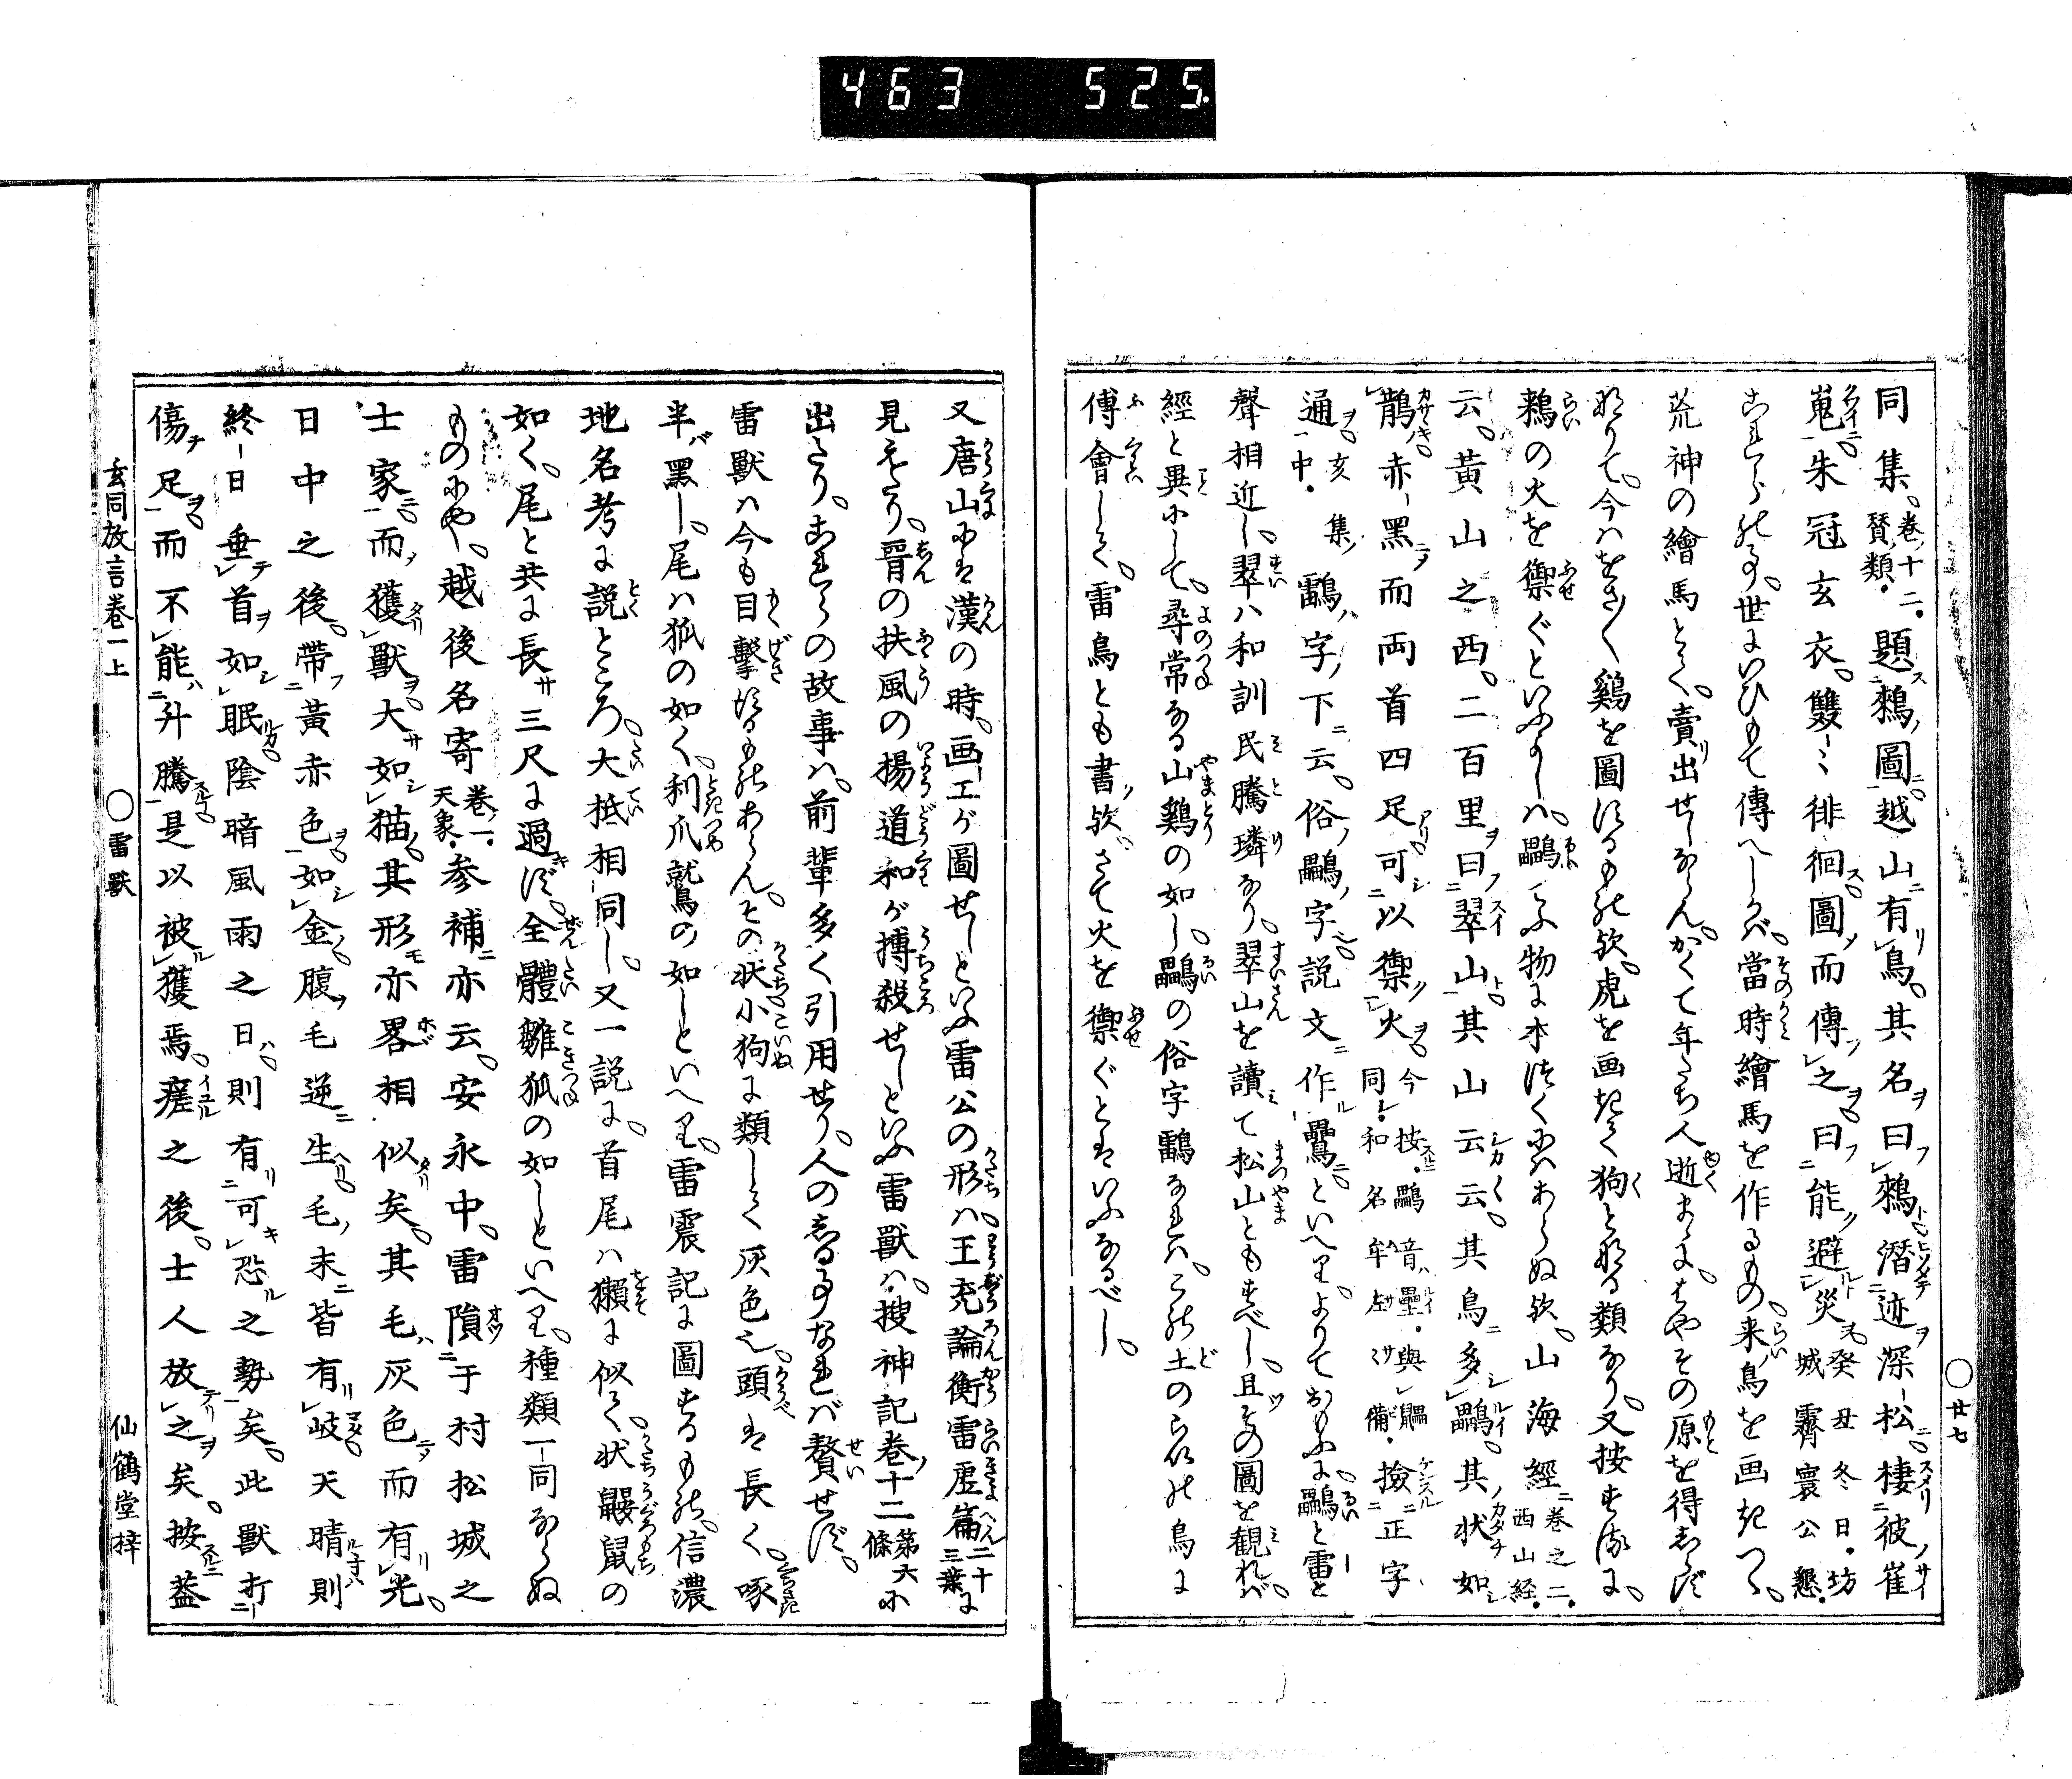 463 525.
同集。巻十二。賛類。題鶆圖越山有鳥。其名曰鶆潛迹深松棲彼崔
嵬朱冠玄衣。雙〻徘徊圖而傳之曰能避災癸丑冬日。坊城霽寰公懇。
これらの事。世にいひもて傳へしかば。當時繪馬を作るもの。来鳥を画きつゝ。
荒神の繪馬とて。賣出せしならん。かくて年たち人逝まゝに。はやその原を得しらず
なりて。今はをさ〳〵鷄を圖するもの欤。虎を画きて狗となる類なり。又按するに。
鶆の火を禦ぐといふよしは。鸓てふ物に本づくにはあらぬ欤。山海經巻之二。西山経。
云。黃山之西。二百里曰翠山其山云云。其鳥多鸓。其状如
鵲赤黑而両首四足可以禦火今按。鸓音壘。與䴎同。和名牟左々備。撿正字
通中。亥集鸓字下云。俗鸓字。説文作鸓といへり。よりておもふに。鸓と雷と
聲相近し。翠ハ和訓民騰璘なり。翠山を讀て松山ともすべし。且その圖を観れば。
經と異にして。尋常なる山鷄の如し。鸓の俗字鸓なれハ。この土のらいの鳥に
傅會して。雷鳥とも書欤。さて火を禦ぐとはいふなるべし。
廿七
又唐山には漢の時。画工が圖せしといふ雷公の形ハ。王充論衡雷虚篇二十三葉に
見えたり。晋の扶風の楊道和が搏殺せしといふ雷獸ハ。搜神記巻十二第六條に
出たり。これらの故事ハ。前輩多く引用せり。人のしる事なれバ贅せず。
雷獸ハ今も目擊するものあらん。その状小狗に類して灰色也。頭は長く。啄
半バ黑し。尾ハ狐の如く。利爪鷲の如しといへり。雷震記に圖するもの。信濃
地名考に説ところ。大抵相同し。又一説に。首尾ハ獺に似て。状鼹鼠の
如く。尾と共に長サ三尺に過ず。全體雛狐の如しといへり。種類一同ならぬ
ものにや。越後名寄巻一。天象。参補亦云。安永中。雷隕于村松城之
士家而獲獸大如猫。其形亦畧相似矣。其毛灰色而有光。
日中之後。帶黃赤色如金。腹毛逆生毛末皆有岐天晴則
終日垂首如眠陰暗風雨之日。則有可恐之勢矣。此獸打
傷足而不能升騰是以被獲焉。瘥之後。士人放之矣。按葢
玄同放言巻一上
雷獸
仙鶴堂梓